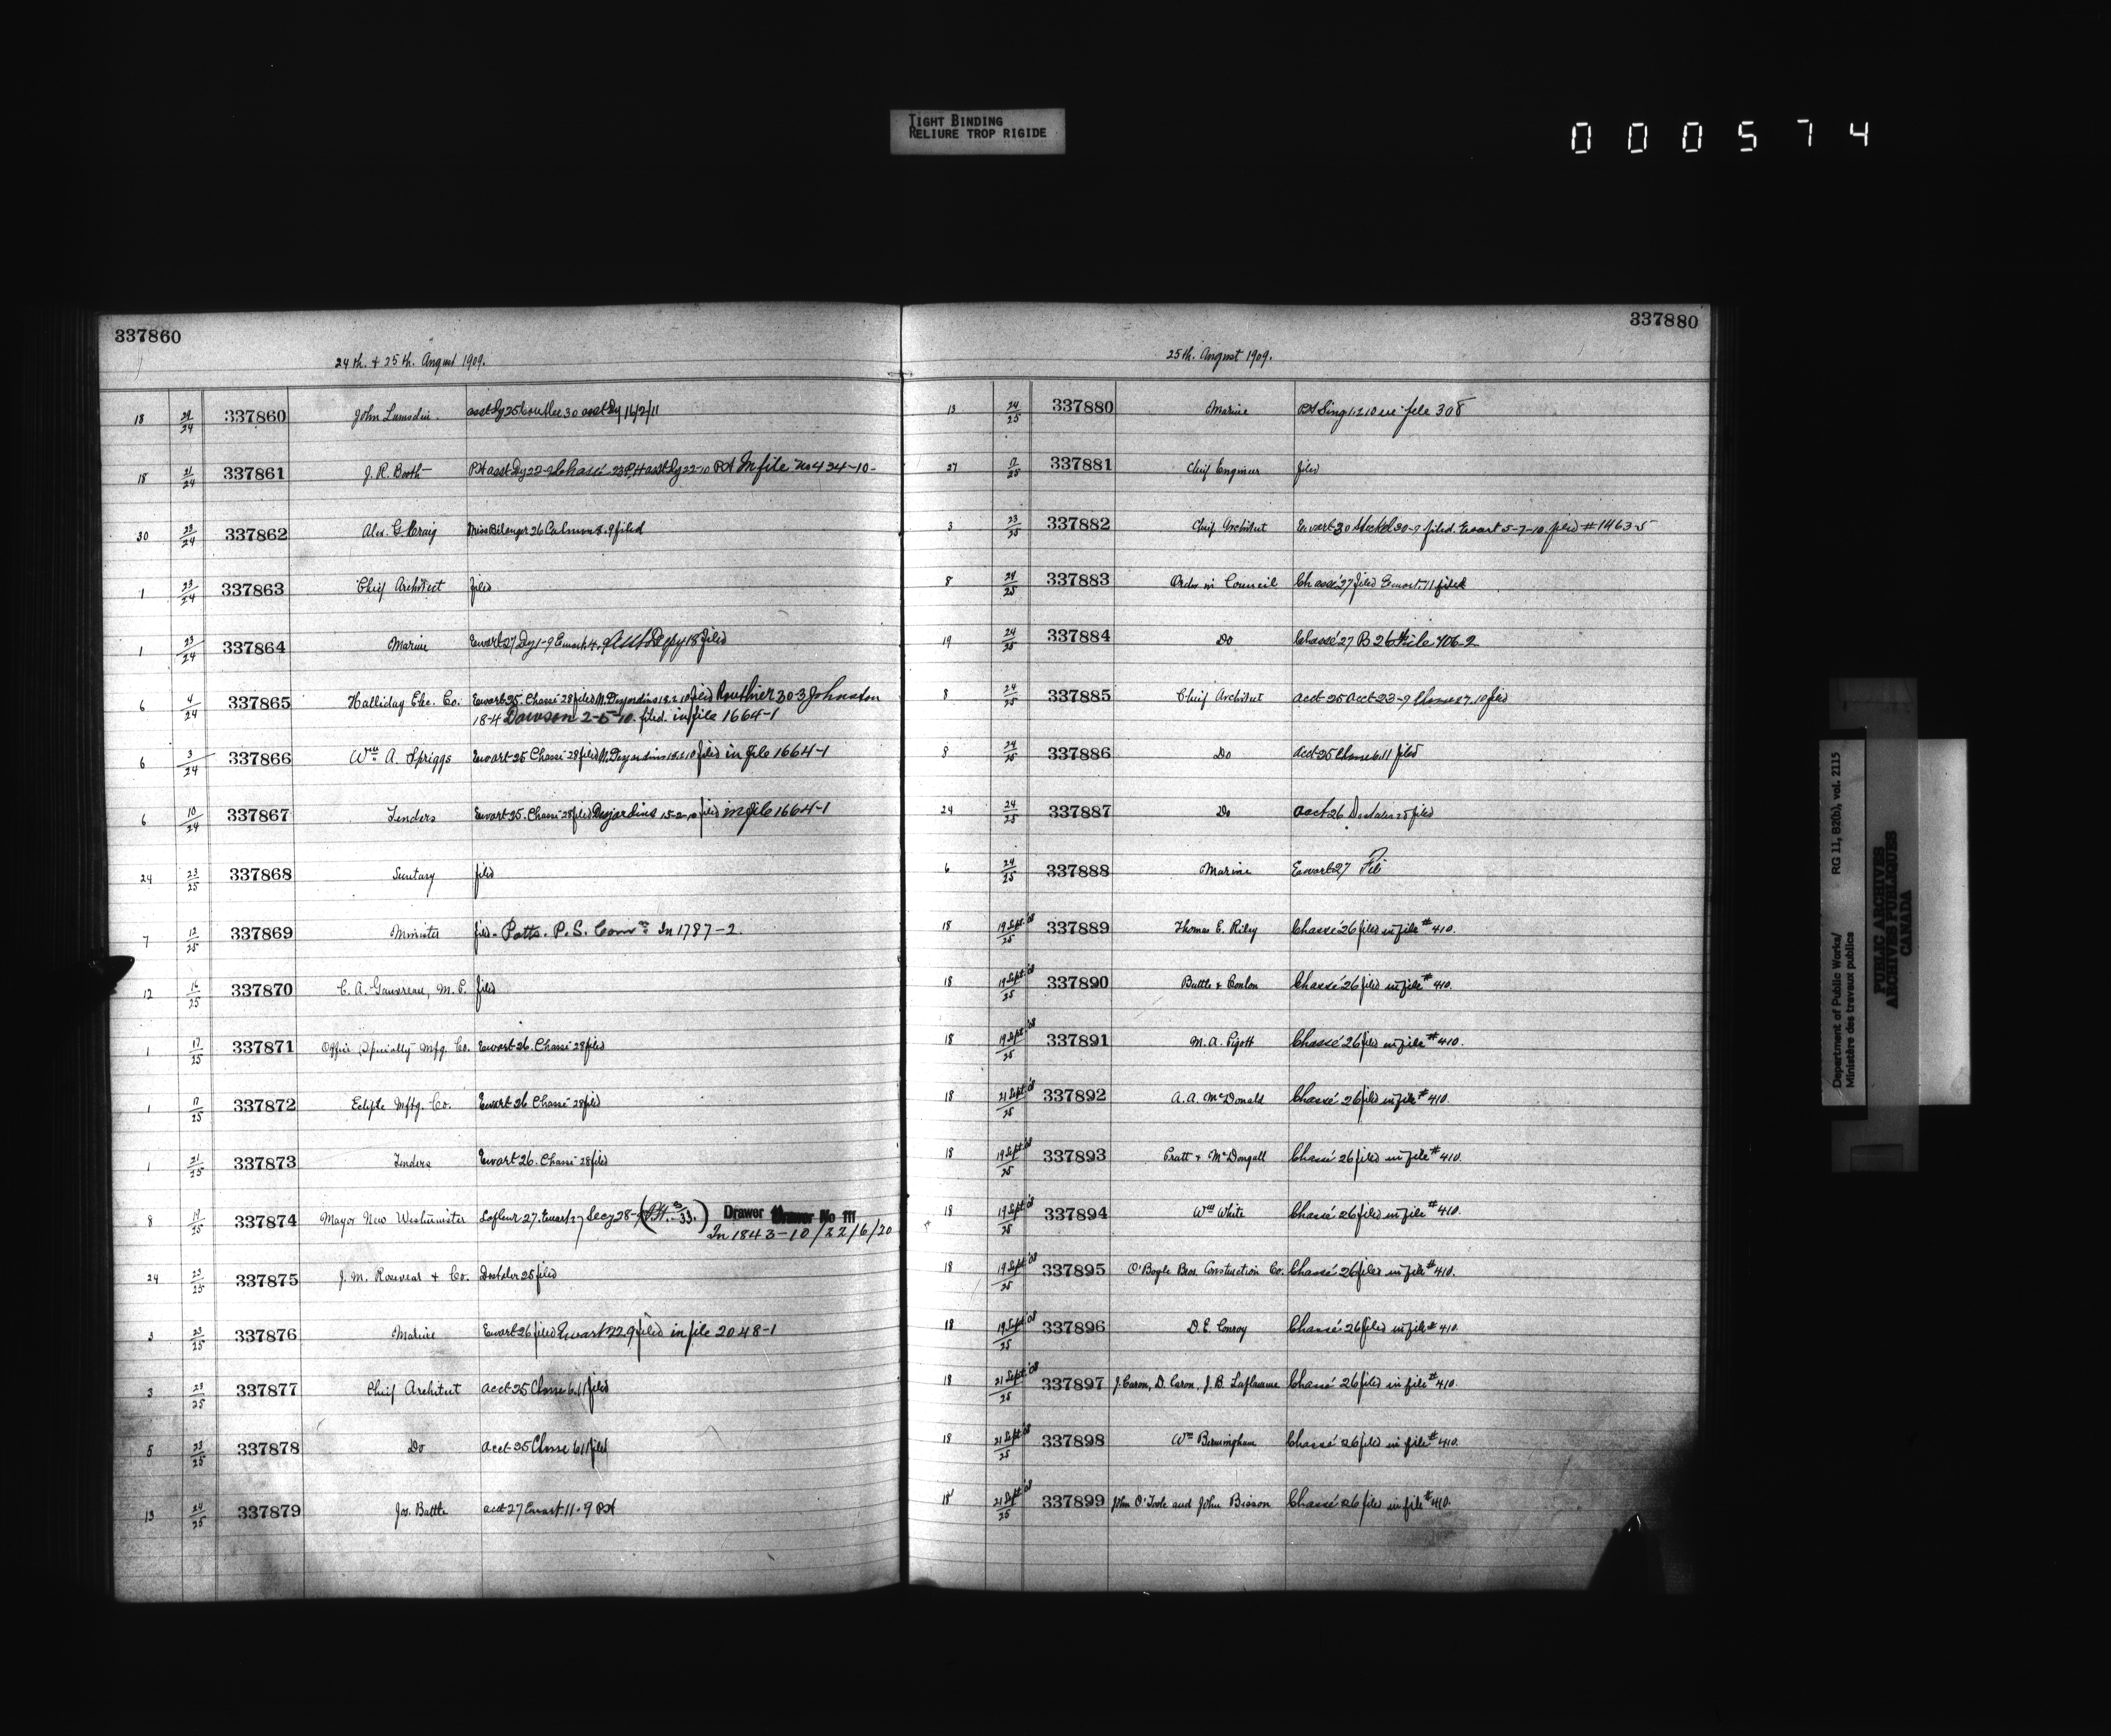 TIGHT BINDING
RELIURE TROP RIGIDE
000574
337860
24th. & 25th. August 1909.
18 24/24 337860 John Lumsden. asst Dy 25 30 asst Dy 16/2/11
18 21/24 337861 J. R. Booth PA asst Dy 22-9 Chassé 23 PA asst Dy 22-10 PA In file No 434-10-
30 23/24 337862 Alex. G. Craig Miss Bélanger 26 8.9 filed
1 23/24 337863 Chief Architect filed
1 23/24 337864 Marine Ewart 27 Dy 1-9 Ewart 4.9 Asst Depy 18 filed
6 4/24 337865 Halliday Elec. Co. Ewart 25. Chassé 28 filed N. Desjardins 18.2.10 filed Routhier 30-3 Johnston
18-4 Dawson 2-5-10. filed. in file 1664-1
6 3/24 337866 Wm A. Spriggs Ewart 25 Chassé 28 filed N. Desjardins 18.2.10 filed in file 1664-1
6 10/24 337867 Tenders Ewart 25. Chassé 28 filed Desjardins 15-2-10 filed in file 1664-1
24 23/25 337868 Secretary filed
7 12/25 337869 Minister filed. Potts. P.S. Comn. In 1787-2.
12 16/25 337870 C. A. Gauvreau, M.P. filed
1 17/25 337871 Office Specialty Mfg. Co. Ewart 26. Chassé 28 filed
1 17/25 337872 Eclipse Mftg. Co. Ewart 26 Chassé 28 filed
1 21/25 337873 Tenders Ewart 26. Chassé 28 filed
8 19/25 337874 Mayor New Westminster Lafleur 27. Ewart 27 Secy 28- Drawer No 111
In 1843-10/22/6/20
24 23/25 337875 J. M. & Co. Dostaler 25 filed
3 23/25 337876 Marine Ewart 26 filed Ewart 22.9 filed in file 2048-1
3 23/25 337877 Chief Architect acct 25 Chasse 6.11 filed
5 23/25 337878 Do acct 25 Chasse 6.11 filed
13 24/25 337879 Jos. Battle acct 27 Ewart 11.9 PA
337880
25th. August 1909.
13 24/25 337880 Marine PA 1.2.10 file 308
27 17/25 337881 Chief Engineer filed
3 23/25 337882 Chief Architect Ewart 30 30-9 filed. Ewart 5-7-10. filed # 1463-5
8 24/25 337883 Order in Council Chassé 27 filed Ewart 11 filed
19 24/25 337884 Do Chassé 27 B 26 File 406-2
8 24/25 337885 Chief Architect acct 25 acct 23-9 Chasse 27.10 filed
8 24/25 337886 Do acct 25 Chasse 6.11 filed
24 24/25 337887 Do acct 26 Dostaler 25 filed
6 24/25 337888 Marine Ewart 27
18 19 Sept. '08/25 337889 Thomas E. Riley Chassé 26 filed in file # 410.
18 19 Sept. '08/25 337890 Battle & Conlon Chassé 26 filed in file # 410.
18 19 Sept. '08/25 337891 M. A. Pigott Chassé 26 filed in file # 410.
18 21 Sept. '08/25 337892 A. A. McDonald Chassé 26 filed in file # 410.
18 19 Sept. '08/25 337893 Pratt & McDougall Chassé 26 filed in file # 410.
18 19 Sept. '08/25 337894 Wm White Chassé 26 filed in file # 410.
18 19 Sept. '08/25 337895 O'Boyle Bros. Construction Co. Chassé 26 filed in file # 410.
18 19 Sept. '08/25 337896 D. E. Conroy Chassé 26 filed in file # 410.
18 21 Sept. '08/25 337897 J. Caron, D. Caron, J. B. Laflamme Chassé 26 filed in file # 410.
18 21 Sept. '08/25 337898 Wm Birmingham Chassé 26 filed in file # 410.
18 21 Sept. '08/25 337899 John O'Toole and John Bisson Chassé 26 filed in file # 410.
Department of Public Works/ RG 11, B2(b), vol. 2115
Ministère des travaux publics
PUBLIC ARCHIVES
ARCHIVES PUBLIQUES
CANADA